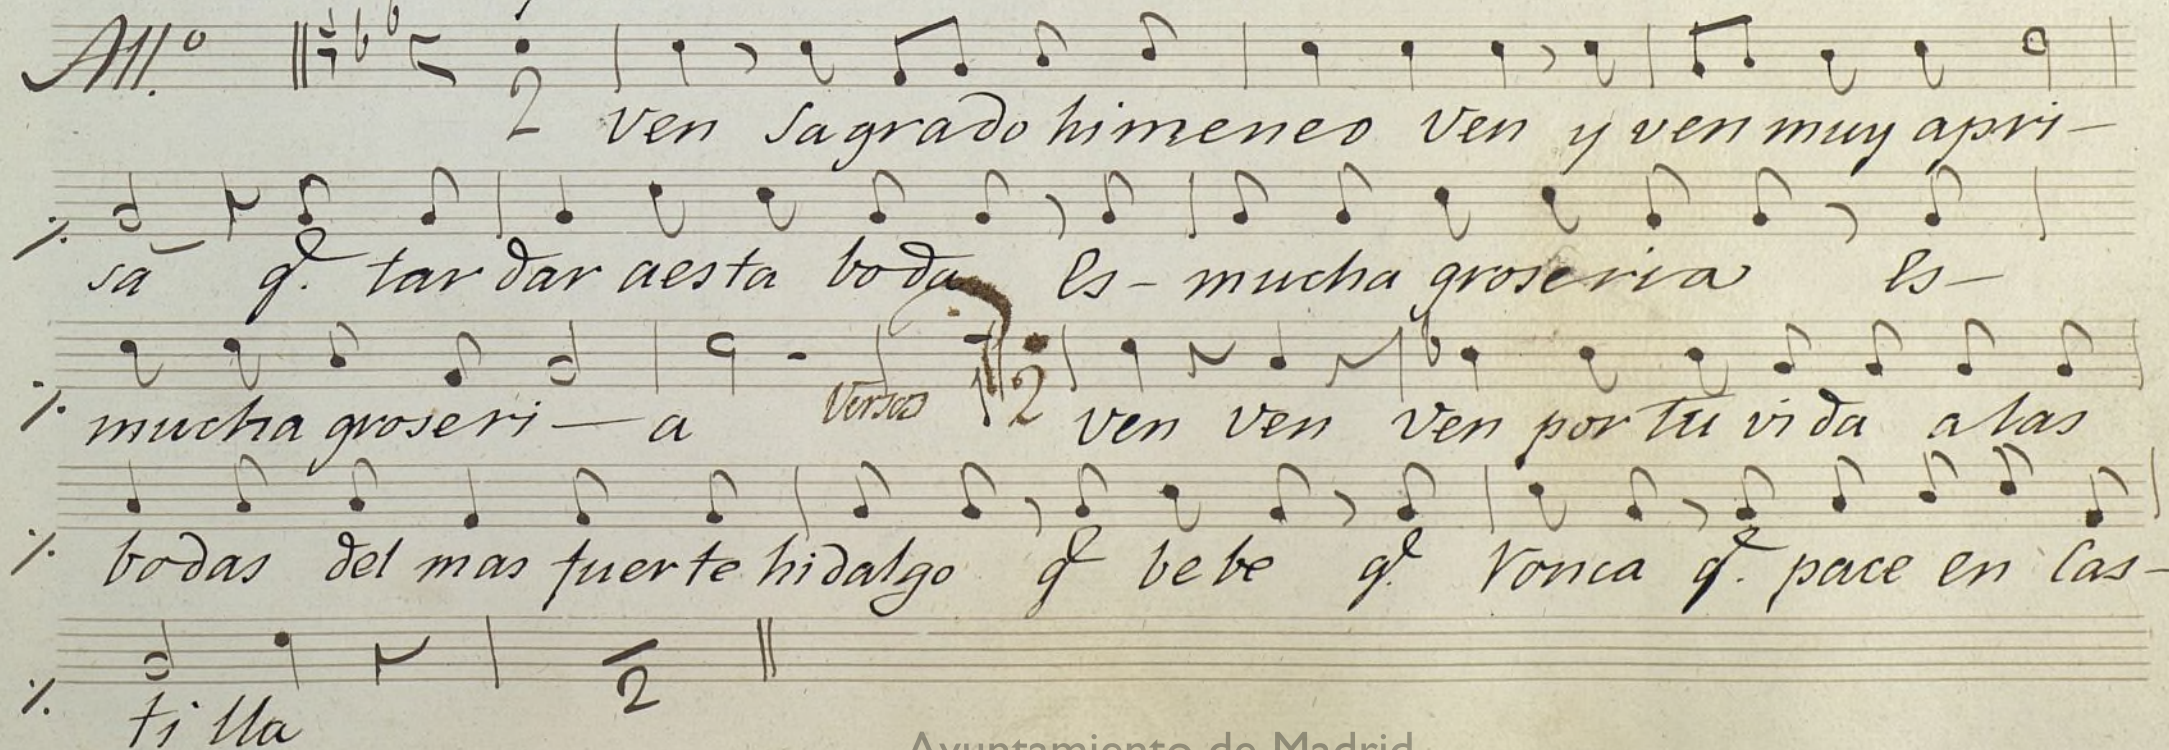 All.º
2
Ven sagrado himeneo Ven y ven muy apri-
sa q.e tardar aesta boda es- mucha groseria es-
mucha groseri-a Versos 2 Ven Ven Ven por tu vida a las
bodas del mas fuerte hidalgo q.e bebe q.e Ronca q.e pace en Cas-
tilla
2
Ayuntamiento de Madrid